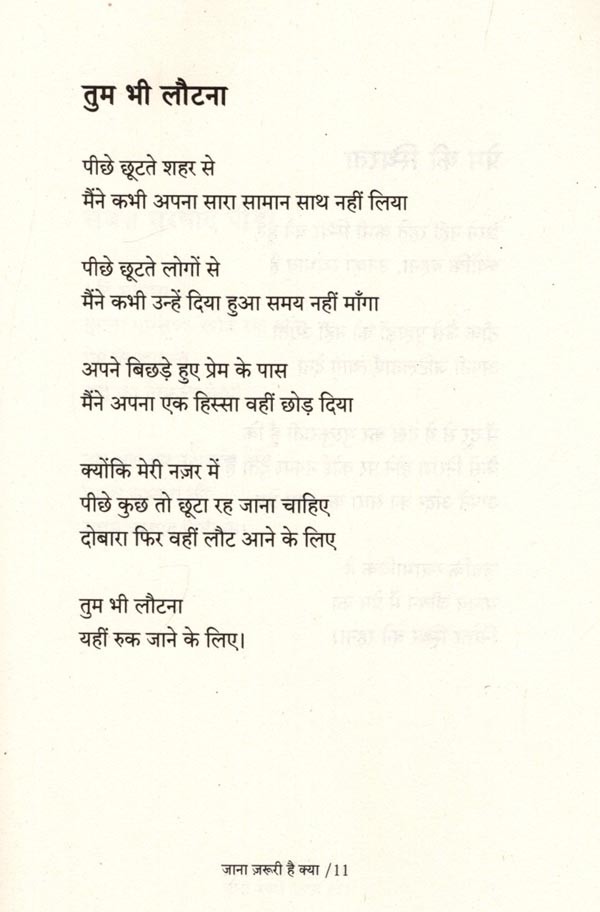 तुम भी लौटना
पीछे छूटते शहर से
मैंने कभी अपना सारा सामान साथ नहीं लिया
पीछे छूटते लोगों से
मैंने कभी उन्हें दिया हुआ समय नहीं माँगा
अपने बिछड़े हुए प्रेम के पास
मैंने अपना एक हिस्सा वहीं छोड़ दिया
क्योंकि मेरी नज़र में
पीछे कुछ तो छूटा रह जाना चाहिए
दोबारा फिर वहीं लौट आने के लिए
तुम भी लौटना
यहीं रुक जाने के लिए।
जाना ज़रूरी है क्या /11